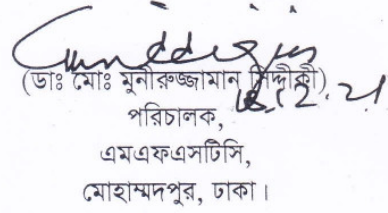 (ডাঃ মোঃ মুনীরুজ্জামান সিদ্দীকী)
১৪.12.21
পরিচালক,
এমএফএসটিসি,
মোহাম্মদপুর, ঢাকা।